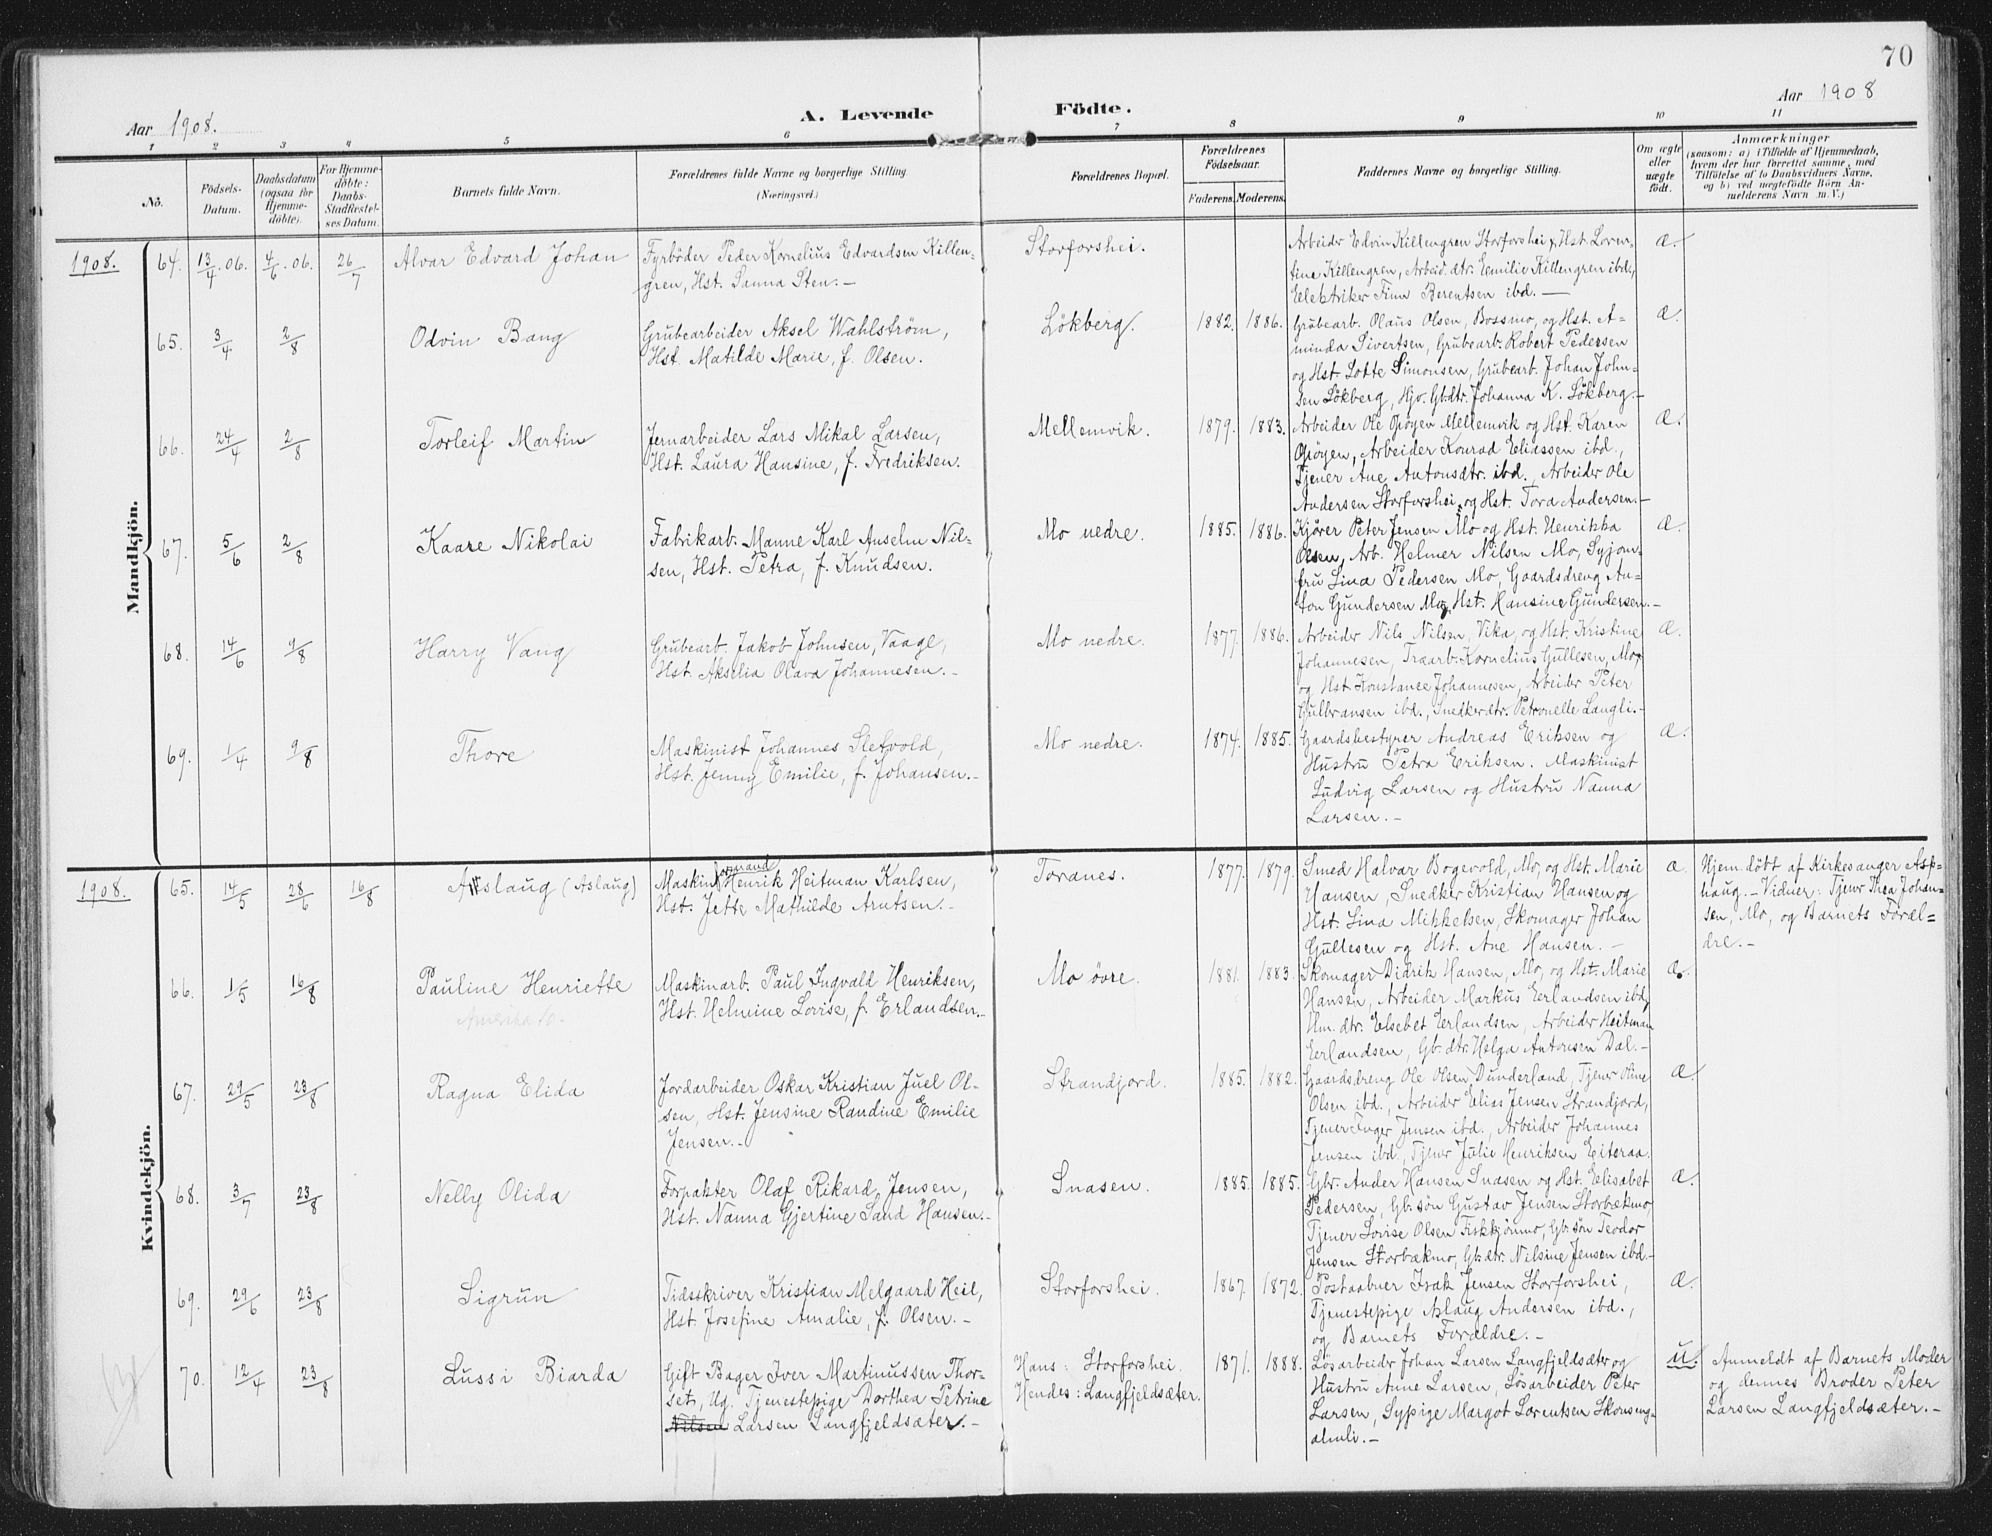 70
Aar 1908.
A. Levende Födte.
Aar 1908
1 2 3 4 5 6 7 8 9 10 11
No.
Födsels-Datum.
Daabsdatum (ogsaa for Hjemme-döbte).
For Hjemme-döbte: Daabs-Stadfæstel-ses Datum.
Barnets fulde Navn.
Forældrenes fulde Navne og borgerlige Stilling (Næringsvei.)
Forældrenes Bopæl.
Forældrenes Födselsaar.
Faderens. Moderens.
Faddernes Navne og borgerlige Stilling.
Om ægte eller uægte født.
Anmærkninger
(saasom: a) i Tilfælde af Hjemmedaab, hvem der har forrettet samme, med Tilföielse af to Daabsvidners Navne, og b) ved uægtefödte Börn An-melderens Navn m. V.)
Mandkjön.
1908. 64. 13/4.06. 4/6.06. 26/7 Alvar Edvard Johan
Fyrböder Peder Kornelius Edvardsen Killen-
gren, Hst. Sanna Sten. –
Storforshei.
Arbeider Edvin Killengren Storforshei, Hst. Loren-
tine Killengren, Arbeid.dtr. Emilie Killengren ibd.,
Elektriker Finn Berentsen ibd. —
Æ.
65. 3/4 2/8 Odvin Bang
Grubearbeider Aksel Wahlström,
Hst. Matilde Marie, f. Olsen.
Lökberg. 1882. 1886.
Grubearb. Olaus Olsen, Bossmo, og Hst. A-
minda Sivertsen, Grubearb. Robert Pedersen
og Hst. Lotte Simonsen, Grubearb. Johan John-
sen Lökberg, Hjo. Gbdtr. Johanna K. Lökberg. –
Æ.
66. 24/4 2/8 Torleif Martin
Jernarbeider Lars Mikal Larsen,
Hst. Laura Hansine, f. Fredriksen.
Mellemvik. 1879. 1883.
Arbeider Ole Gjöyen Mellemvik og Hst. Karen
Gjöyen, Arbeider Konrad Eliassen ibd.,
Tjener Ane Antonsdtr. ibd., Arbeider Ole
Andersen Storforshei, og Hst. Tora Andersen. –
Æ.
67. 5/6 2/8 Kaare Nikolai
Fabrikarb. Manne Karl Anselm Nil-
sen, Hst. Petra, f. Knudsen.
Mo nedre. 1885. 1886.
Kjører Peter Jensen Mo og Hst. Henrikka
Olsen, Arb. Helmer Nilsen Mo, Syjom-
fru Lina Pedersen Mo, Gaardsdreng An-
ton Gundersen Mo, Hst. Hansine Gundersen. –
Æ
68. 14/6 9/8 Harry Vang
Grubearb. Jakob Johnsen, Vaage,
Hst. Akselia Olava Johannesen. –
Mo nedre. 1877. 1886.
Arbeider Nils Nilsen, Vika, og Hst. Kristine
Johannesen, Træarb. Kornelius Gullesen, Mo,
og Hst. Konstance Johannesen, Arbeider Peter
Gulbransen ibd., Snedkerdtr. Petronelle Langli. –
Æ.
69. 1/4 9/8 Thore
Maskinist Johannes Sletvold,
Hst. Jenny Emilie, f. Johansen. –
Mo nedre. 1874. 1885.
Gaardsbestyrer Andreas Eriksen og
Hustru Petra Eriksen. Maskinist
Ludvig Larsen og Hustru Nanna
Larsen. –
Æ.
Kvindekjön.
1908. 65. 14/5 28/6 16/8 Aslaug (Aslaug)
formand
Maskin Henrik Heitman Karlsen,
Hst. Jette Mathilde Arntsen. –
Toranes. 1877. 1879.
Smed Halvar Bogevold, Mo, og Hst. Marie
Hansen, Snedker Kristian Hansen og
Hst. Lina Mikkelsen, Skomager Johan
Gullesen og Hst. Ane Hansen. –
Æ.
Hjem.döbt af Kirkesanger Ask-
haug. – Vidner: Tjener Thea Johan-
sen, Mo, og Barnets Foræl-
dre. –
66. 1/5 16/8 Pauline Henriette
Amerika 10.
Maskinarb. Paul Ingvald Henriksen,
Hst. Helmine Lovise, f. Erlandsen. –
Mo övre. 1881. 1883.
Skomager Didrik Hansen, Mo, og Hst. Marie
Hansen, Arbeider Markus Erlandsen ibd,
Hm. dtr. Elsebet Erlandsen, Arbeider Heitman
Erlandsen, Gb.dtr. Helga Antonsen Dal. –
Æ.
67. 29/5 23/8 Ragna Elida
Jordarbeider Oskar Kristian Juel Ol-
sen, Hst. Jensine Randine Emilie
Jensen. –
Strandjord. 1885. 1882.
Gaardsdreng Ole Olsen Dunderland, Tjener Oline
Olsen ibd., Arbeider Elias Jensen Strandjord,
Tjener Inger Jensen ibd., Arbeider Johannes
Jensen ibd, Tjener Julie Henriksen Eiteraa.
Æ.
68. 3/7 23/8 Nelly Olida
Forpakter Olaf Rikard Jensen,
Hst. Nanna Gjertine Sand Hansen. –
Snasen. 1885. 1885.
Gbr. Ander Hansen Snasen og Hst. Elisabet
Pedersen, Gb.sön Gustav Jensen Storbækmo,
Tjener Lovise Olsen Fiskkjönmo, Gb.sön Teodor
Jensen Storbækmo, Gb.dtr. Nilsine Jensen ibd. –
Æ.
69. 29/6 23/8 Sigrun
Tidsskriver Kristian Melgaard Heil,
Hst. Josefine Amalie, f. Olsen. –
Storforshei. 1867. 1872.
Postaabner Isak Jensen Storforshei,
Tjenestepige Aslaug Andersen ibd.,
og Barnets Forældre. –
Æ.
70. 12/4 23/8 Lussi Biarda
Gift Bager Iver Martinussen Thor-
set, Ug. Tjenestepige Dorthea Petrine
Nilsen Larsen Langfjeldsæter. –
Hans: Storforshei.
Hendes: Langfjeldsæter.
1871. 1888.
Løsarbeider Johan Larsen Langfjeldsæter og
Hustru Anne Larsen, Løsarbeider Peter
Larsen, Sypige Margot Lorentsen Skonseng-
almli. –
U.
Anmeldt af Barnets Moder
og dennes Broder Peter
Larsen Langfjeldsæter. –